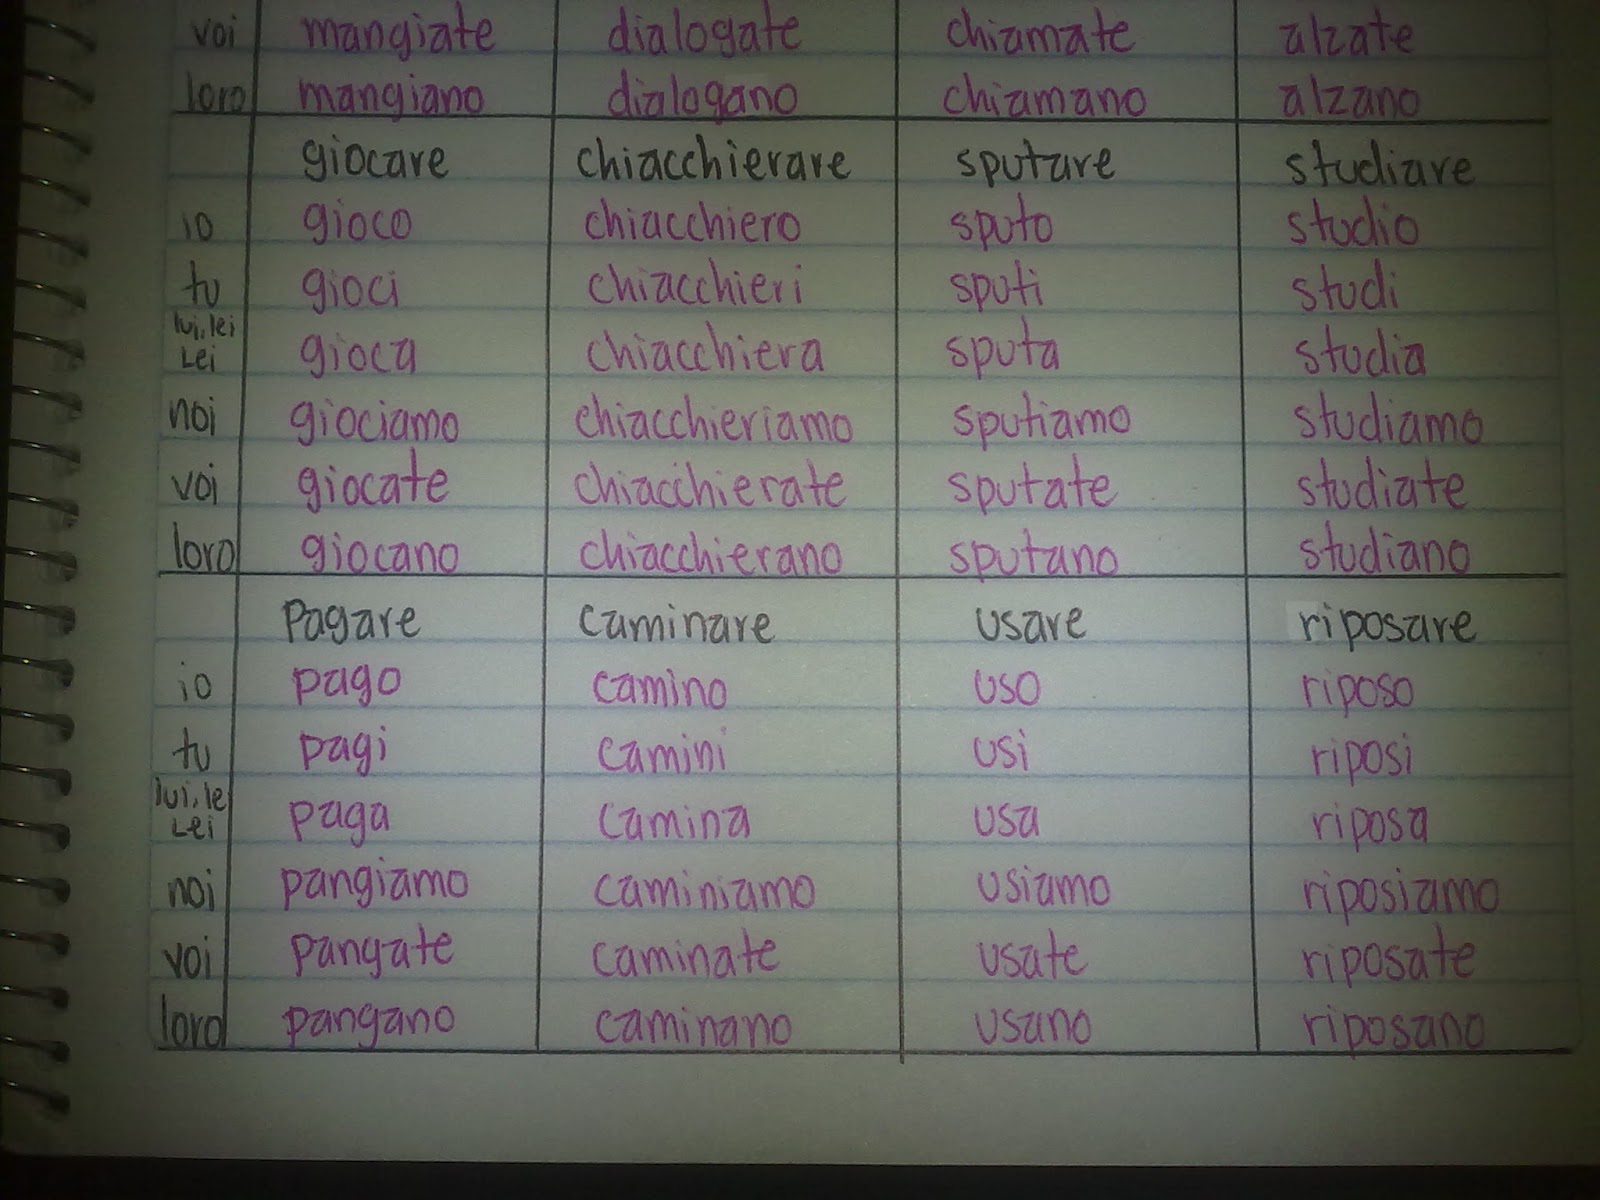 voi mangiate dialogate chiamate alzate
loro mangiano dialogano chiamano alzano
giocare chiacchierare sputare studiare
io gioco chiacchiero sputo studio
tu gioci chiacchieri sputi studi
lui, lei
Lei gioca chiacchiera sputa studia
noi giociamo chiacchieriamo sputiamo studiamo
voi giocate chiacchierate sputate studiate
loro giocano chiacchierano sputano studiano
Pagare caminare usare riposare
io pago camino uso riposo
tu pagi camini usi riposi
lui, lei
Lei paga camina usa riposa
noi pangiamo caminiamo usiamo riposiamo
voi pangate caminate usate riposate
loro pangano caminano usano riposano